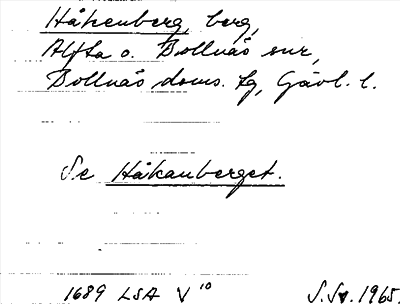 Håkenberg, berg,
Alfta o. Bollnäs snr,
Bollnäs doms. tg, Gävl. l.
Se Håkanberget.
1689 LSA V 10 S.Sv. 1965.